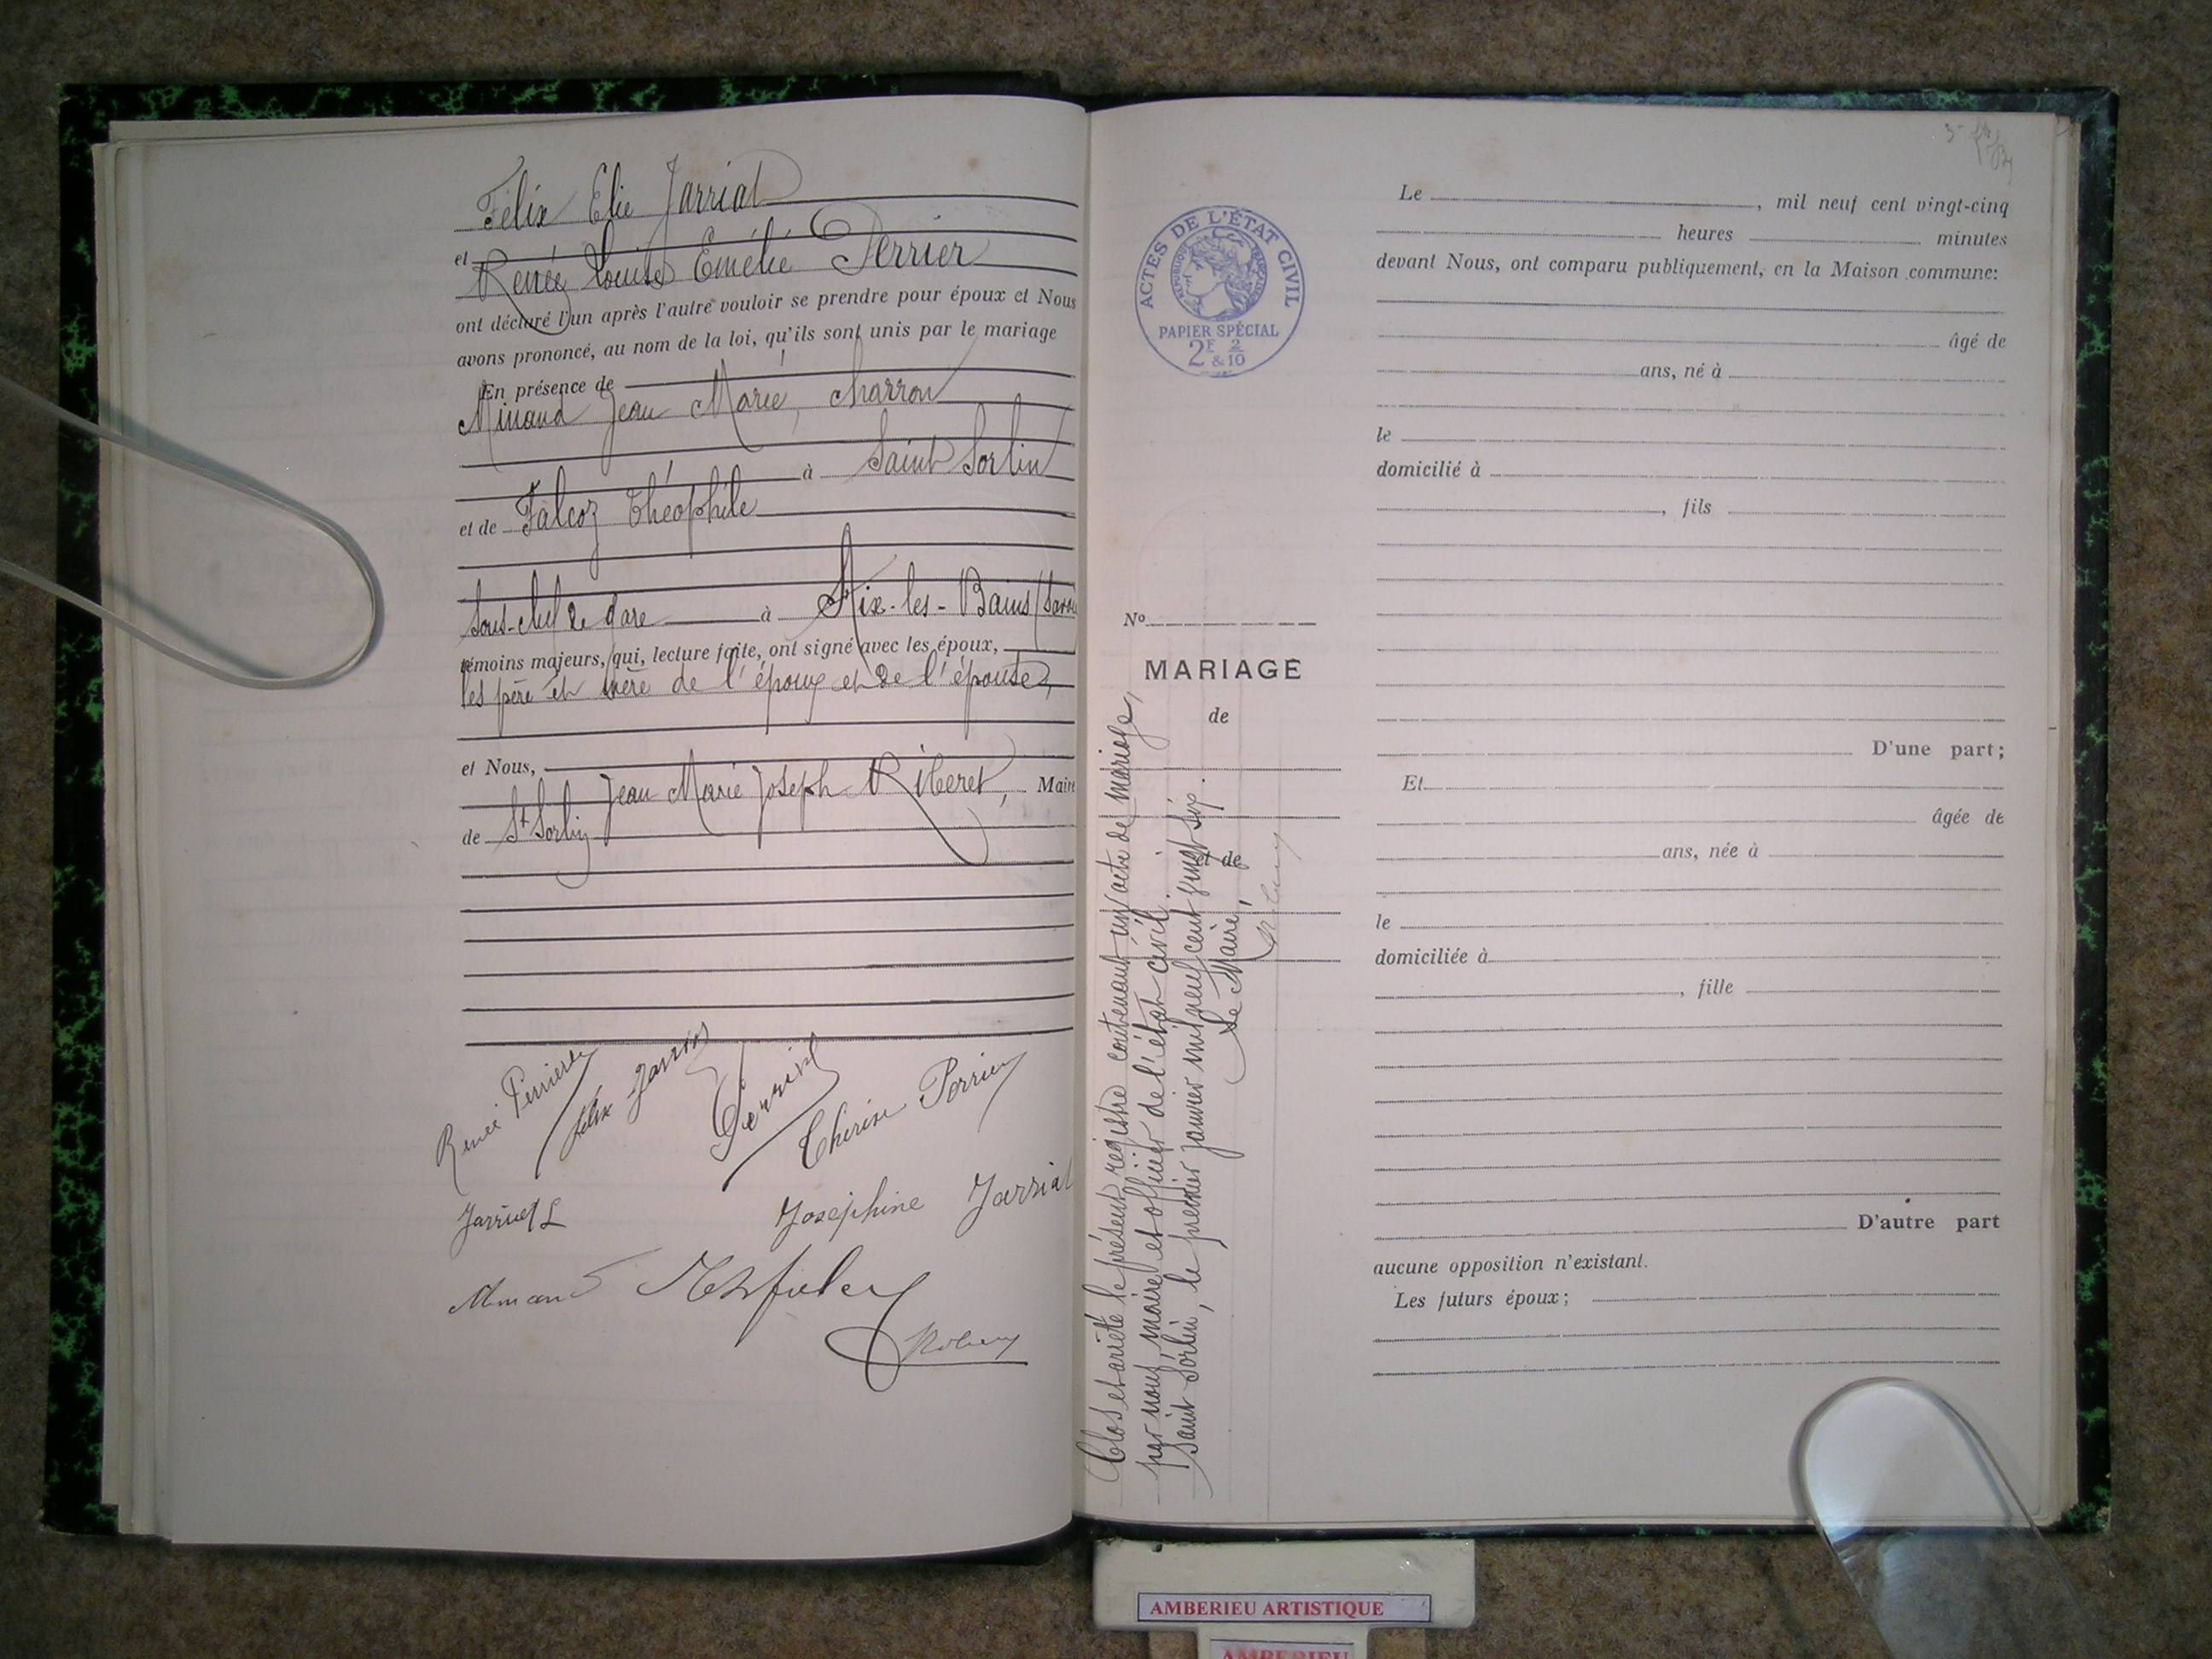 Félix Elie Jarriat
et Renée Louise Emélie Perrier
ont déclaré l'un après l'autre vouloir se prendre pour époux et Nous
avons prononcé, au nom de la loi, qu'ils sont unis par le mariage
En présence de
Minand Jean Marie, charron
à Saint Sorlin
et de Falcoz Théophile
sous-chef de gare à Aix-les-Bains (Savoie
témoins majeurs, qui, lecture faite, ont signé avec les époux,
les père et mère de l'époux et de l'épouse,
et Nous,
Jean Marie Joseph Riberet, Maire
de St Sorlin
Renée Perrier
Félix Jarriat
Perrier
Thérèse Perrier
Jarriat L
Josephine Jarriat
Minand
3
ACTES DE L'ÉTAT CIVIL
RÉPUBLIQUE FRANÇAISE
PAPIER SPÉCIAL
2F & 2/10
No
MARIAGE
de
et de
Clos et arrêté le présent registre contenant un acte de mariage,
par nous, maire et officier de l'état civil
Saint Sorlin, le premier janvier mil neuf cent vingt six.
Le Maire,
Le , mil neuf cent vingt-cinq
heures minutes
devant Nous, ont comparu publiquement, en la Maison commune:
âgé de
ans, né à
le
domicilié à
, fils
D'une part;
Et
âgée de
ans, née à
le
domiciliée à
, fille
D'autre part
aucune opposition n'existant.
Les futurs époux;
AMBERIEU ARTISTIQUE
AMBERIEU